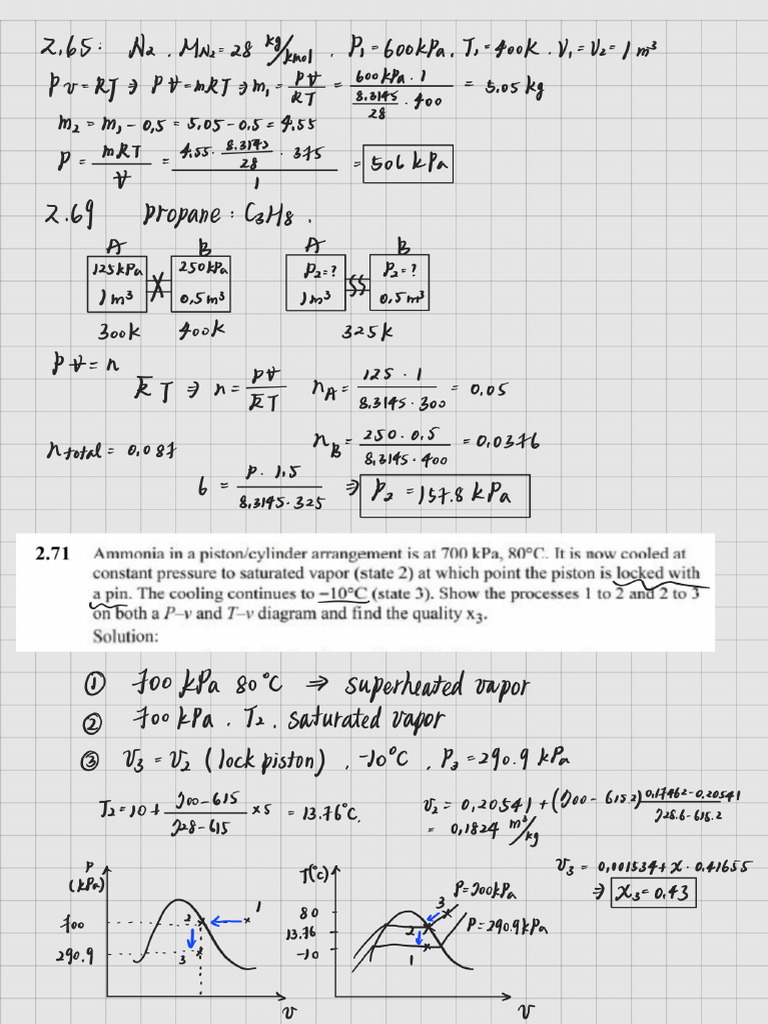 2.65: N₂ . M_N₂ = 28 kg/kmol . P₁ = 600kPa. T₁ = 400K. V₁ = V₂ = 1 m³
PV = RT ⇒ PV = mRT ⇒ m₁ = PV/RT = (600kPa · 1)/(8.3145/28 · 400) = 5.05 kg
m₂ = m₁ - 0,5 = 5.05 - 0.5 = 4.55
P = mRT/V = (4.55 · 8.3145/28 · 375)/1 = 506 kPa
2.69 propane : C₃H₈ .
A B A B
125kPa 250kPa P₂=? P₂=?
1m³ 0,5m³ 1m³ 0.5m³
300k 400k 325k
PV = n
R̄T ⇒ n = PV/R̄T n_A = (125 · 1)/(8.3145 · 300) = 0.05
n total = 0,087 n_B = (250 · 0.5)/(8,3145 · 400) = 0,0376
6 = (P. 1.5)/(8,3145 · 325) ⇒ P₂ = 157.8 kPa
2.71 Ammonia in a piston/cylinder arrangement is at 700 kPa, 80°C. It is now cooled at
constant pressure to saturated vapor (state 2) at which point the piston is locked with
a pin. The cooling continues to −10°C (state 3). Show the processes 1 to 2 and 2 to 3
on both a P–v and T–v diagram and find the quality x₃.
Solution:
① 700 kPa 80°C ⇒ superheated vapor
② 700 kPa . T₂ . saturated vapor
③ V₃ = V₂ (lock piston) , -10°C , P₃ = 290.9 kPa
T₂ = 10 + (700-615)/(728-615) × 5 = 13.76°C.
V₂ = 0,20541 + (700 - 615.2) (0,17462-0,20541)/(728.6-615.2)
= 0,1824 m³/kg
V₃ = 0,001534 + x · 0.41655
⇒ x₃ = 0.43
P (kPa) 700 290.9 1 2 3 V
T(°C) 80 13.76 -10 3 2 1 P=700kPa P=290.9kPa V